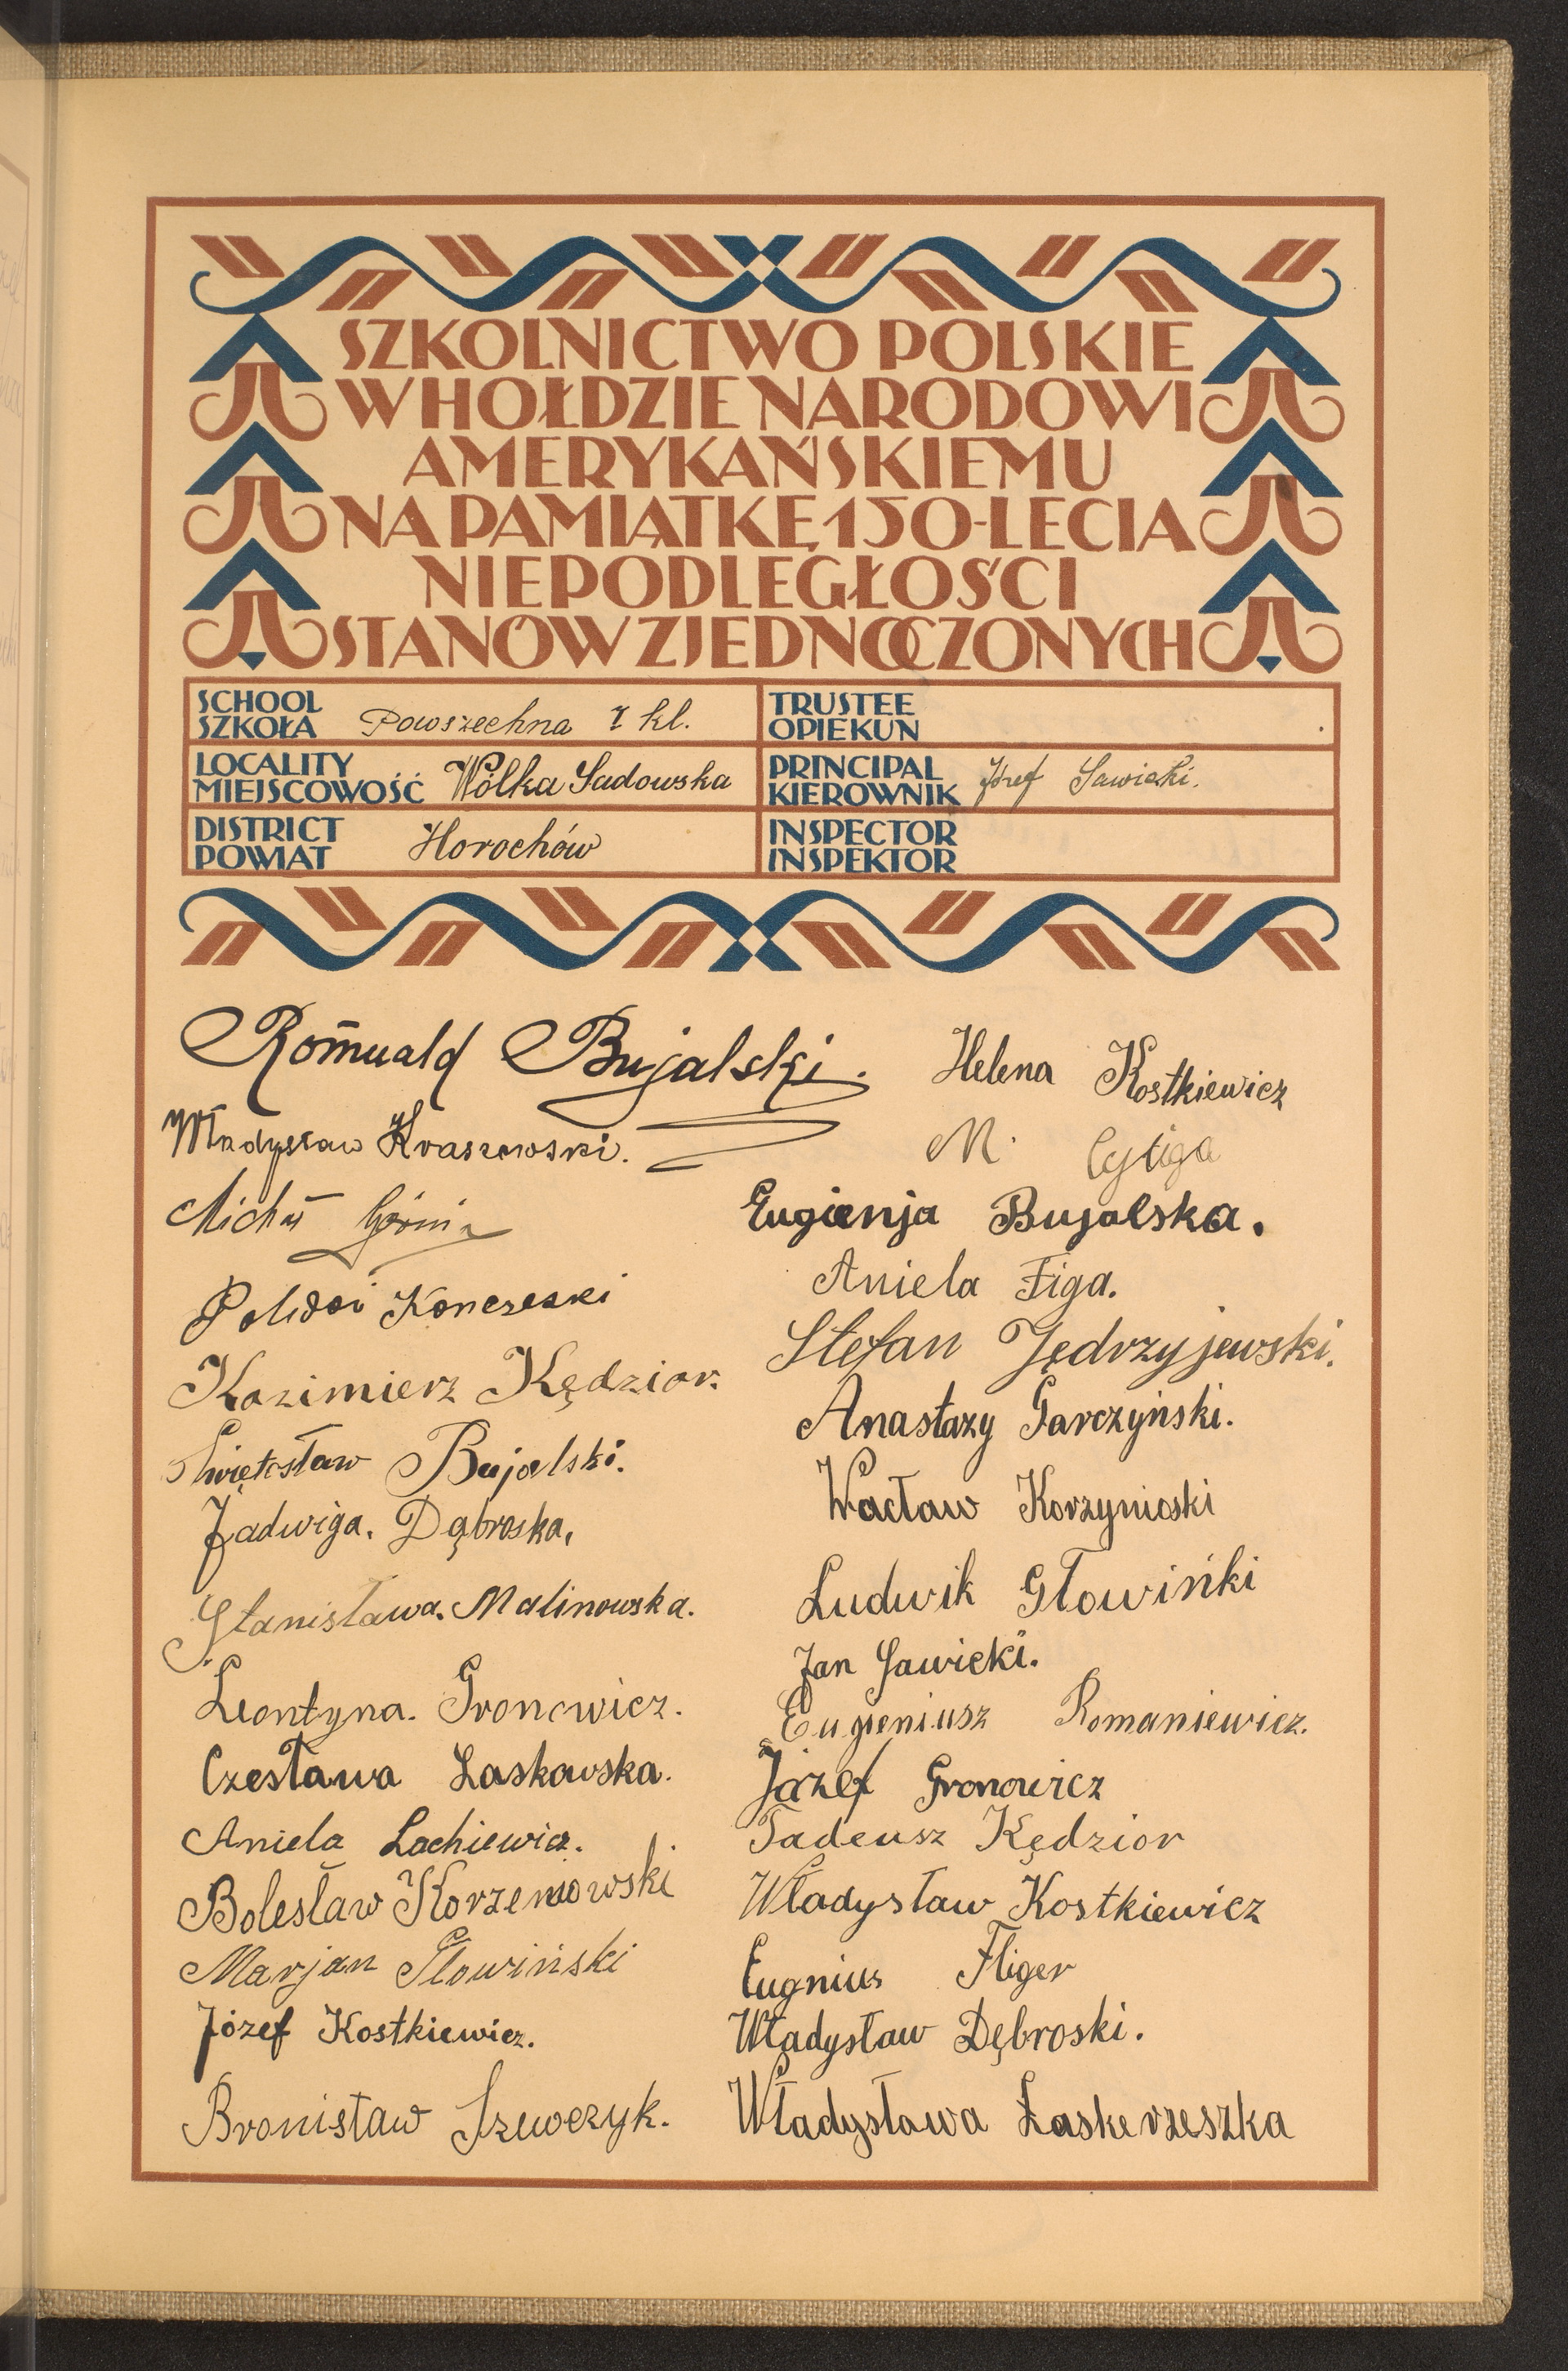 SZKOLNICTWO POLSKIE
W HOŁDZIE NARODOWI
AMERYKAŃSKIEMU
NA PAMIĄTKĘ 150-LECIA
NIEPODLEGŁOŚCI
STANÓW ZJEDNOCZONYCH
SCHOOL
SZKOŁA Powszechna kl.
TRUSTEE
OPIEKUN
LOCALITY
MIEJSCOWOŚĆ Wólka Sadowska
PRINCIPAL
KIEROWNIK Józef Sawicki.
DISTRICT
POWIAT Horochów
INSPECTOR
INSPEKTOR
Romuald Bujalski.
Władysław Kraszewski.
Michał
Kazimierz Kędzior.
Świętosław Bujalski.
Jadwiga. Dąbroska.
Stanisława. Malinowska.
Leontyna. Gronowicz.
Czesława Laskowska.
Aniela Lachiewicz.
Bolesław Korzeniowski
Marjan Głowiński
Józef Kostkiewicz.
Bronisław Szewczyk.
Helena Kostkiewicz
M. Cytiga
Eugienja Bujalska.
Aniela Figa.
Stefan Jędrzyjewski.
Anastazy Garczyński.
Wacław Korzynioski
Ludwik Głowińki
Jan Sawicki.
Eugieniusz Romaniewicz.
Józef Gronowicz
Tadeusz Kędzior
Władysław Kostkiewicz
Eugnius Fliger
Władysław Dębroski.
Władysława